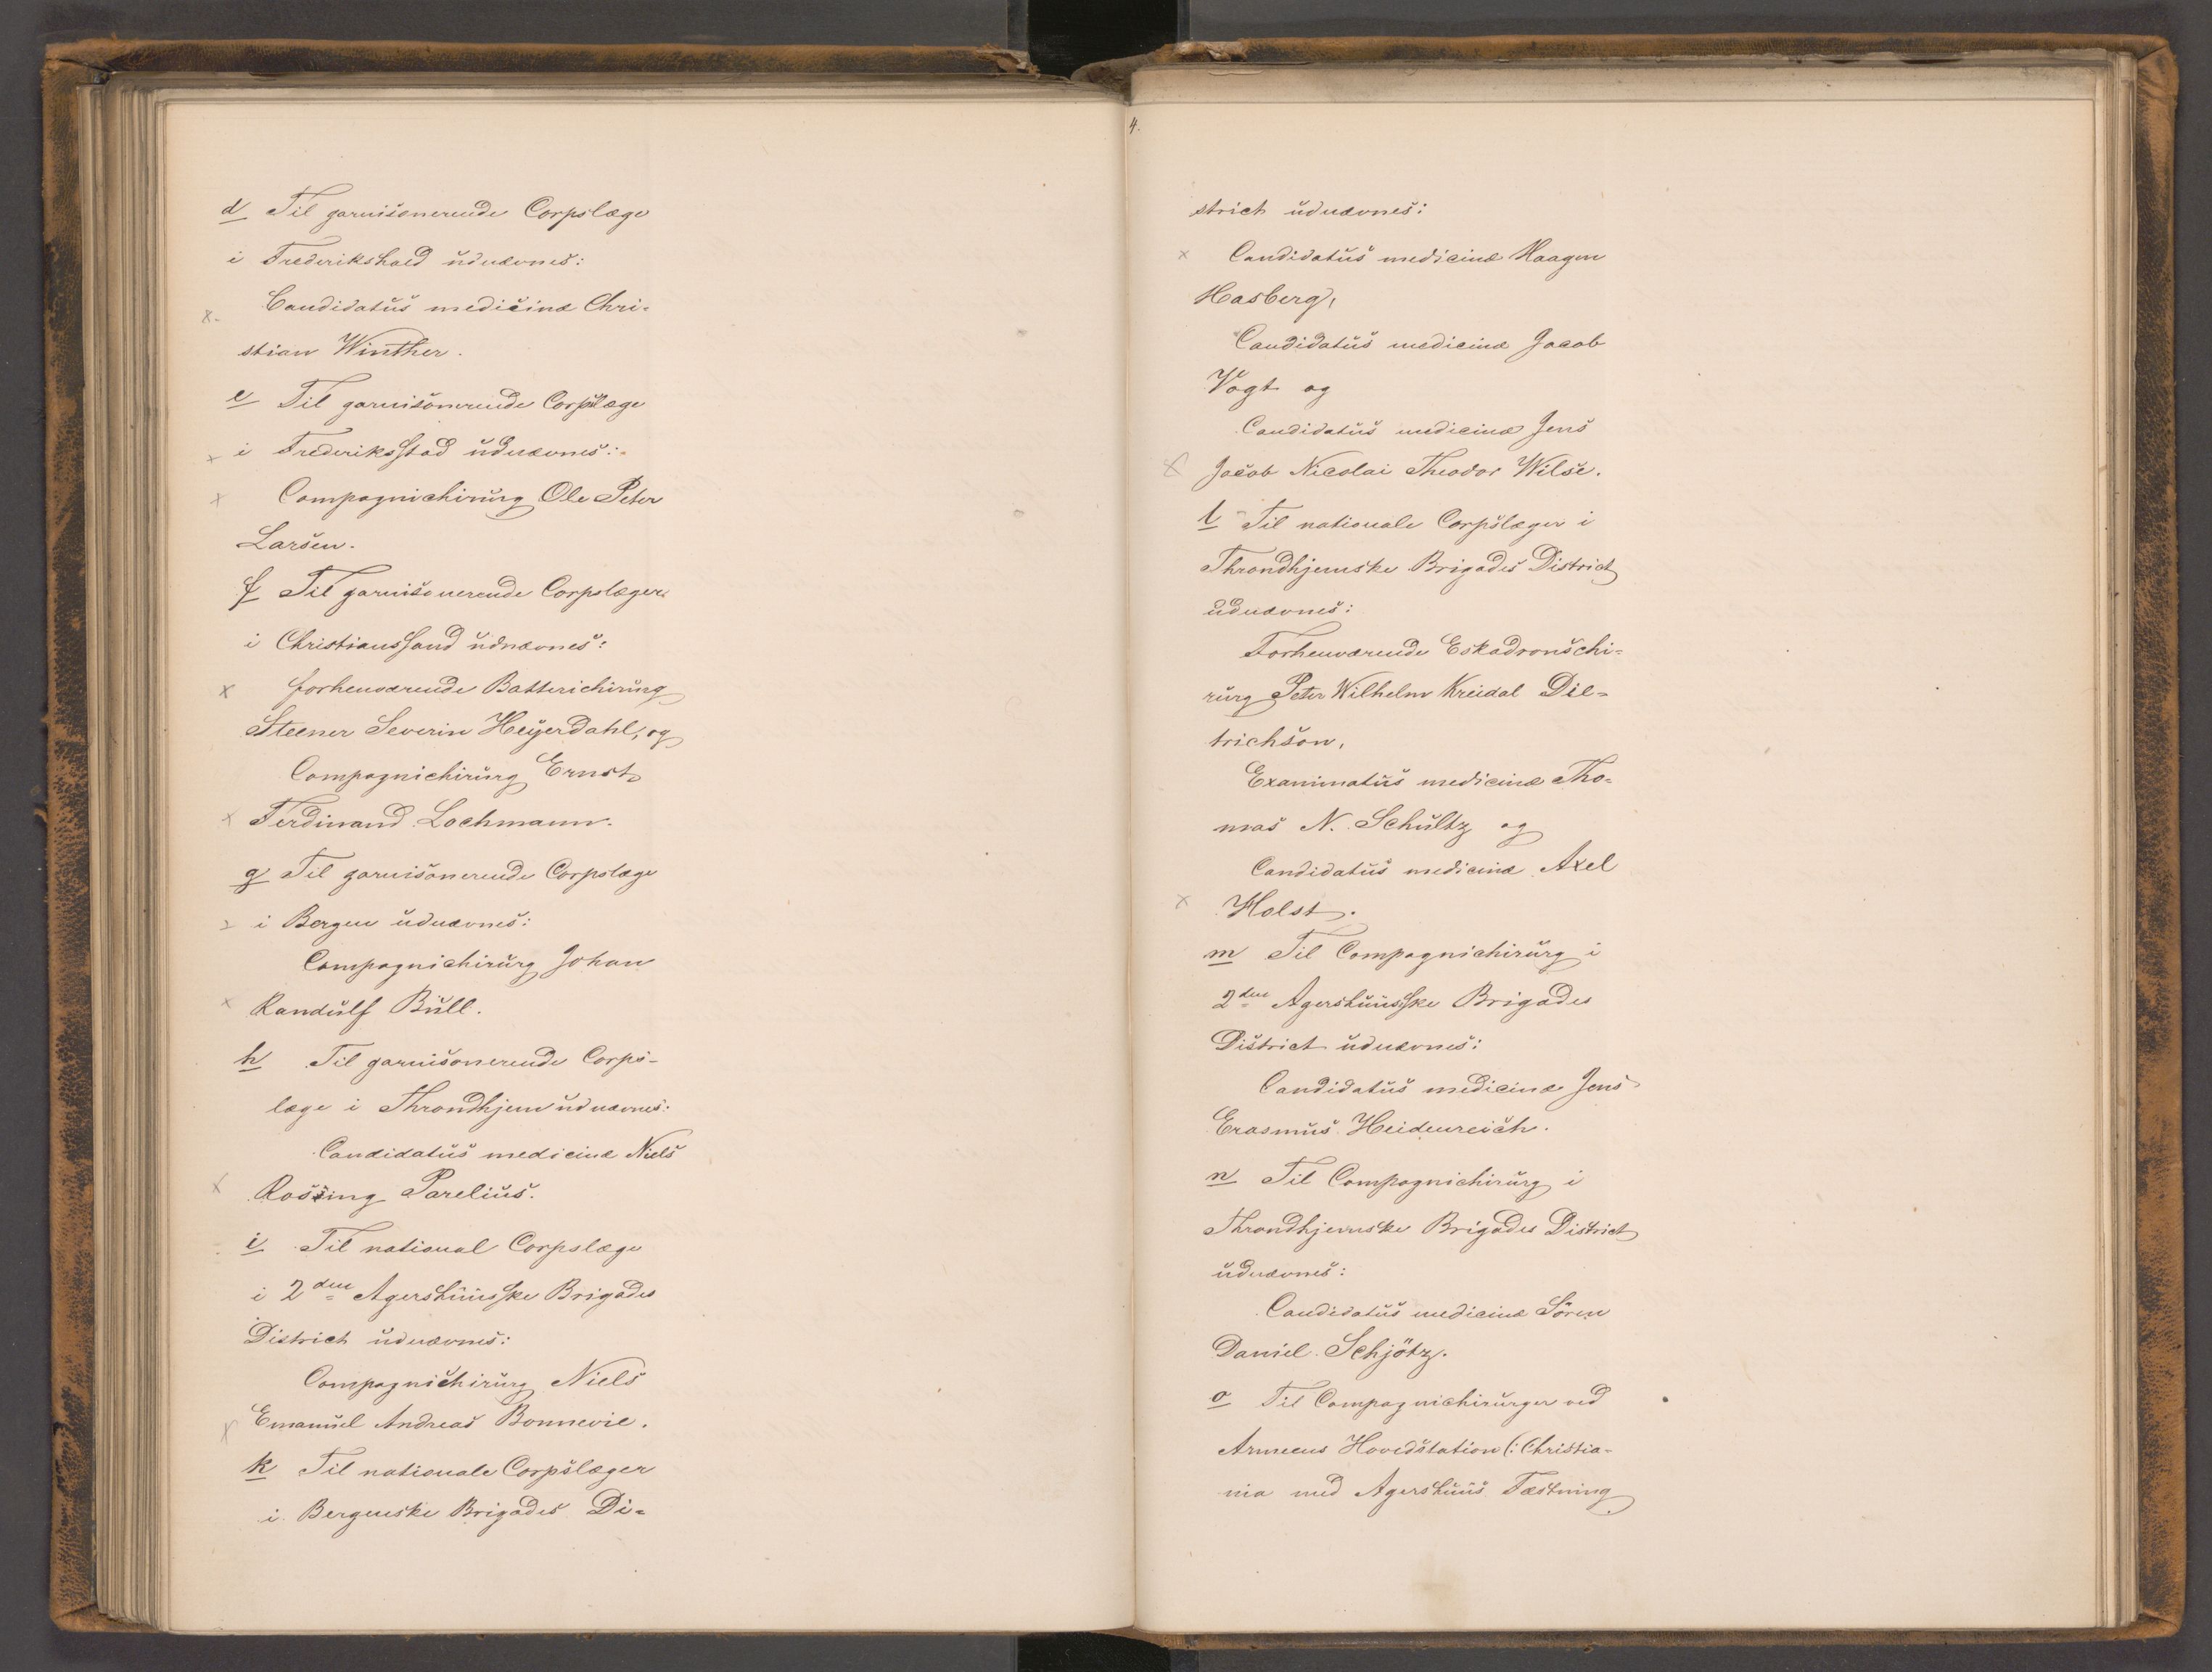 d Til garnisonerende Corpslæge
i Frederikshald udnævnes:
Candidatus medicinæ Chri-
stian Winther.
e Til garnisonerende Corpslæge
i Frederiksstad udnævnes:
Compagnichirurg Ole Peter
Larsen.
f Til garnisonerende Corpslæger
i Christianssand udnævnes:
forhenværende Batterichirurg
Steener Severin Heyerdahl, og
Compagnichirurg Ernst
Ferdinand Lochmann.
g Til garnisonerende Corpslæge
i Bergen udnævnes:
Compagnichirurg Johan
Randulf Bull.
h Til garnisonerende Corps-
læge i Throndhjem udnævnes:
Candidatus medicinæ Niels
Rossing Parelius.
i Til national Corpslæge
i 2den Agershuusske Brigades
District udnævnes:
Compagnichirurg Niels
Emanuel Andreas Bonnevie.
k Til nationale Corpslæger
i Bergenske Brigades Di-
4.
strict udnævnes:
Candidatus medicinæ Haagen
Hasberg,
Candidatus medicinæ Jacob
Vogt og
Candidatus medicinæ Jens
Jacob Nicolai Theodor Wilse.
l Til nationale Corpslæger i
Throndhjemske Brigades District
udnævnes:
Forhenværende Eskadronschi-
rurg Peter Wilhelm Kreidal Die-
trichson,
Examinatus medicinæ Tho-
mas N. Schultz og
Candidatus medicinæ Axel
Holst.
m Til Compagnichirurg i
2den Agershuusske Brigades
District udnævnes:
Candidatus medicinæ Jens
Erasmus Heidenreich.
n Til Compagnichirurg i
Throndhjemske Brigades District
udnævnes:
Candidatus medicinæ Sören
Daniel Schjötz.
o Til Compagnichirurger ved
Armeens Hovedstation (: Christia-
nia med Agershuus Fæstning